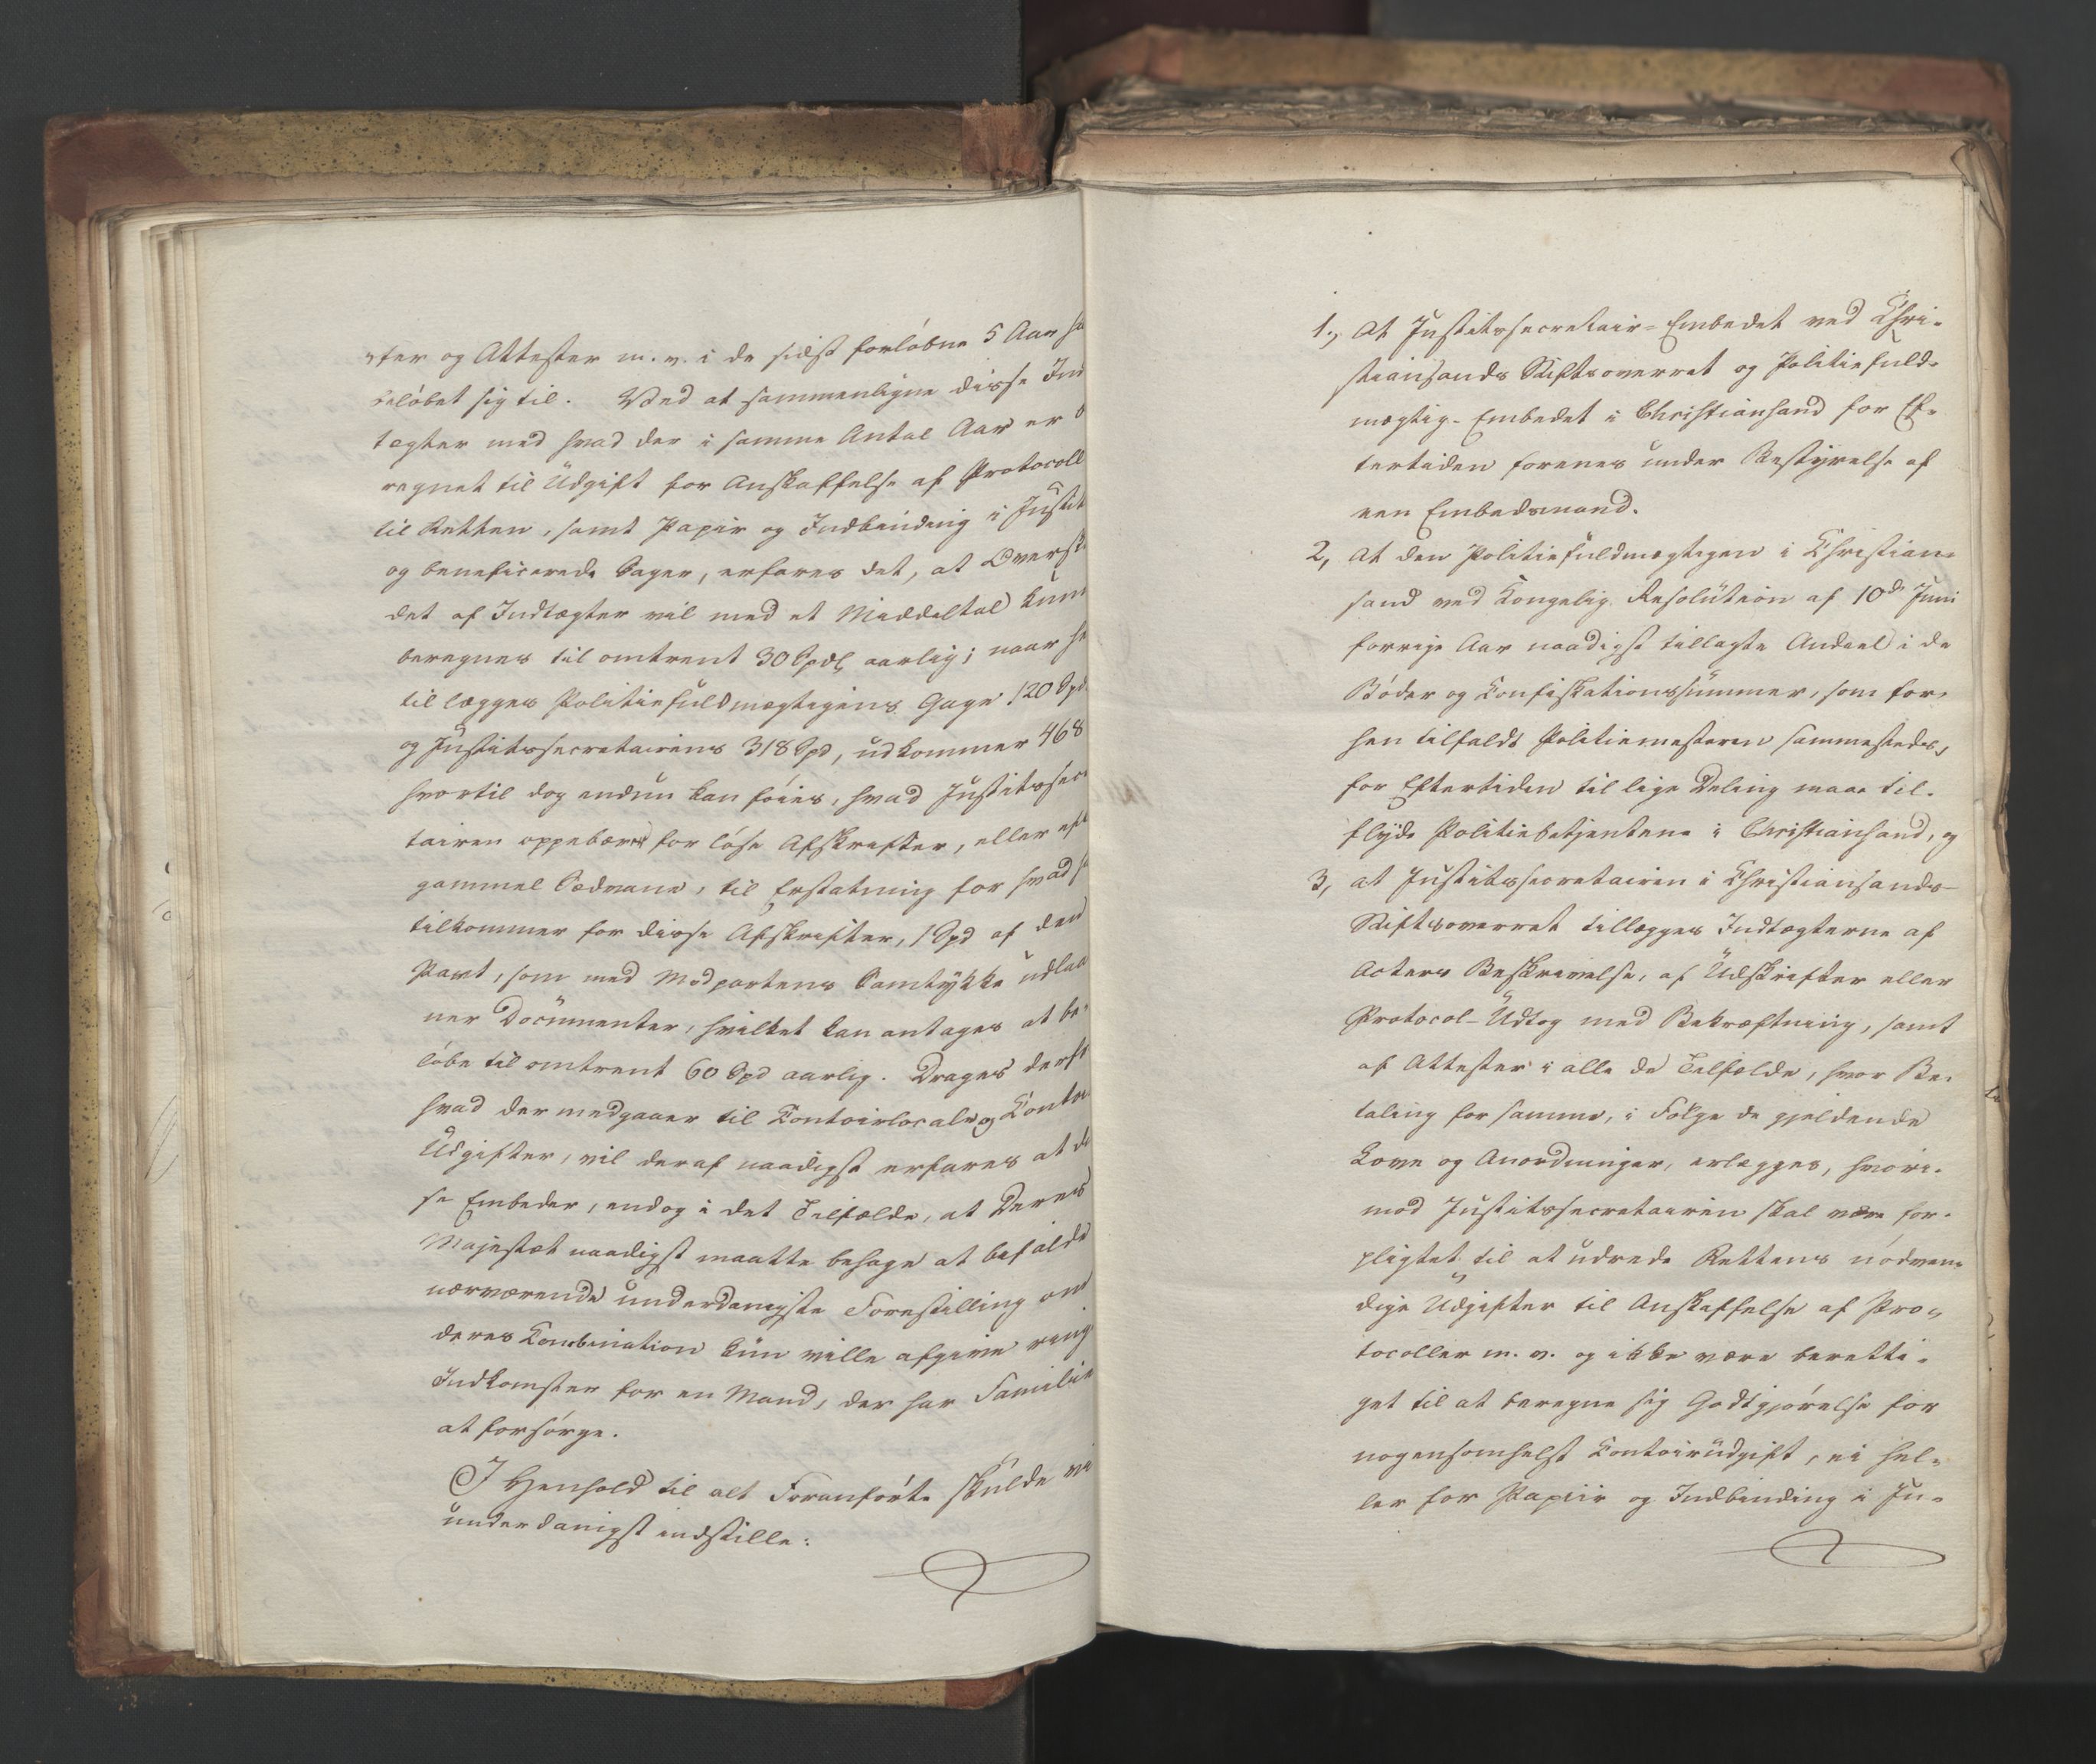 ter og Attester m. v. i de sidst forløbne 5 Aar
beløbet sig til. Ved at sammenligne disse Ind
tægter med hvad der i samme Antal Aar er
regnet til Udgift for Anskaffelse af Protocoll
til Retten, samt Papir og Indbinding i Justits
og beneficerede Sager, erfares det, at Oversk
det af Indtægter vil med et Middeltal kun
beregnes til omtrent 30 Spdl, aarlig; naar
til lægges Politiefuldmægtigens Gage 120 Spd.
og Justitssecretairens 318 Spd, udkommer 468
hvortil dog endnu kan føies, hvad Justitssec
tairen oppebærer for løse Afskrifter, eller eft
gammel Sædvane, til Erstatning for hvad
tilkommer for disse Afskrifter, 1 Spd af den
Part, som med Modpartens Samtykke udlaa
ner Documenter, hvilket kan antages at be-
løbe til omtrent 60 Spd aarlig. Drages derfr
hvad der medgaaer til Contoirlocale og Conto
Udgifter, vil deraf naadigst erfares at di
se Embeder, endog i det Tilfælde, at Deres
Majestæt naadigst maatte behage at bifalde
nærværende underdanigste Forestilling om
deres Combination kun ville afgive ring
Indkomster for en Mand, der har Familie
at forsørge.
I Henhold til alt Foranførte skulde vi
underdanigst indstille:
1., At Justitssecretair-Embedet ved Chri-
stiansands Stiftsoverret og Politiefuld-
mægtig-Embedet i Christiansand for Ef-
tertiden forenes under Bestyrelse af
een Embedsmand.
2, At den Politiefuldmægtigen i Christian-
sand ved Kongelig Resolution af 10de Juni
forrige Aar naadigst tillagte Andeel i de
Bøder og Confiskationssummer, som for-
hen tilfaldt Politiemesteren sammesteds,
for Eftertiden til lige Deling maae til-
flyde Politiebetjentene i Christiansand, og
3, at Justitssecretairen i Christiansands
Stiftsoverret tillægges Indtægterne af
Acters Beskrivelse, af Udskrifter eller
Protocol-Udtog med Bekræftning, samt
af Attester i alle de Tilfælde, hvor Be-
taling for samme, i Følge de gjeldende
Love og Anordninger, erlægges, hvori-
mod Justitssecretairen skal være for-
pligtet til at udrede Rettens nødven-
dige Udgifter til Anskaffelse af Pro-
tocoller m. v. og ikke være beretti-
get til at beregne sig Godtgjørelse for
nogensomhelst Contoirudgift, ei hel-
ler for Papiir og Indbinding i Ju-